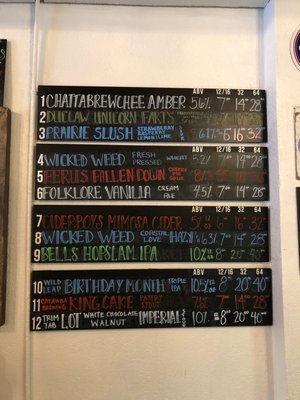 ABV 12/16 32 64
1 CHATTABREWCHEE AMBER 5.6% 7⁰⁰ 14⁰⁰ 28⁰⁰
2 DUCLAW UNICORN FARTS
3 PRAIRIE SLUSH STRAWBERRY RASPBERRY LEMON LIME 16 32
ABV 12/16 32 64
4 WICKED WEED FRESH PRESSED WHEAT 7 14 28
5 FERUS FALLEN DOWN
6 FOLKLORE VANILLA CREAM ALE 7.5% 7 14 28
ABV 12/16 32 64
7 CIDERBOYS MIMOSA CIDER
8 WICKED WEED COASTAL LOVE HAZY 7 14 28
9 BELLS HOPSLAM IPA 10% 8 20 40
ABV 12/16 32 64
10 WILD LEAP BIRTHDAY MONTH TRIPLE IPA 10.5% 8 20 40
11 CATAWBA KING CAKE PASTRY STOUT 7 14 28
12 TRIM TAB LOT WHITE CHOCOLATE WALNUT IMPERIAL 10% 8 20 40